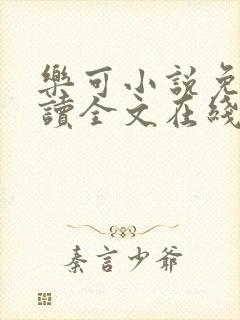 樂可小說免
讀全文在綫
秦言少爷